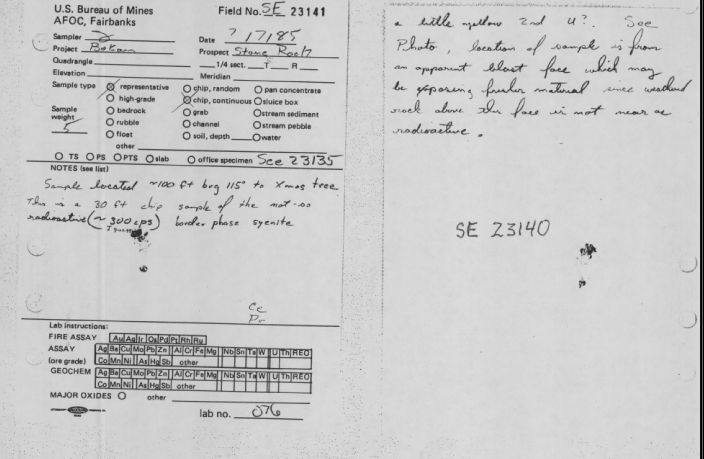 U.S. Bureau of Mines
AFOC, Fairbanks
Field No. SE 23141
Sampler 2
Date 7/17/85
Project Bokan
Prospect Stone Rock
Quadrangle
1/4 sect. T R
Elevation
Meridian
Sample type
representative
chip, random
pan concentrate
high-grade
chip, continuous
sluice box
Sample weight 5
bedrock
grab
stream sediment
rubble
channel
stream pebble
float
soil, depth
water
other
TS PS PTS slab office specimen See 23135
NOTES (see list)
Sample located ~100 ft brg 115° to Xmas tree
This is a 30 ft chip sample of the not-so
radioactive (~300 cps) border phase syenite
Ce
Pr
Lab instructions:
FIRE ASSAY Au Ag Ir Os Pd Pt Rh Ru
ASSAY Ag Ba Cu Mo Pb Zn Al Cr Fe Mg Nb Sn Ta W U Th REO
(ore grade) Co Mn Ni As Hg Sb other
GEOCHEM Ag Ba Cu Mo Pb Zn Al Cr Fe Mg Nb Sn Ta W U Th REO
Co Mn Ni As Hg Sb other
MAJOR OXIDES other
lab no. 076
a little yellow 2nd U?. See
Photo, location of sample is from
an apparent blast face which may
be exposing fresher material since weathered
rock above this face is not near as
radioactive.
SE 23140